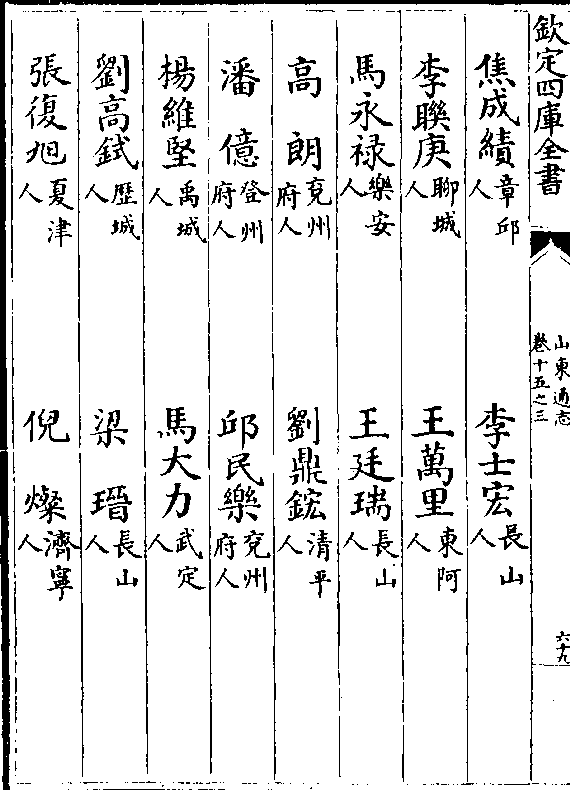 欽定四庫全書
山東通志
卷十五之三
六十九
焦成績章邱人 李士宏長山人
李聯庚聊城人 王萬里東阿人
馬永禄樂安人 王廷瑞長山人
高朗兖州府人 劉鼎鋐清平人
潘億登州府人 邱民樂兖州府人
楊維堅禹城人 馬大力武定人
劉高鋱歴城人 梁瑨長山人
張復旭夏津人 倪燦濟寧人